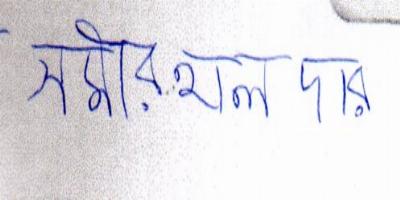 সমীর হালদার